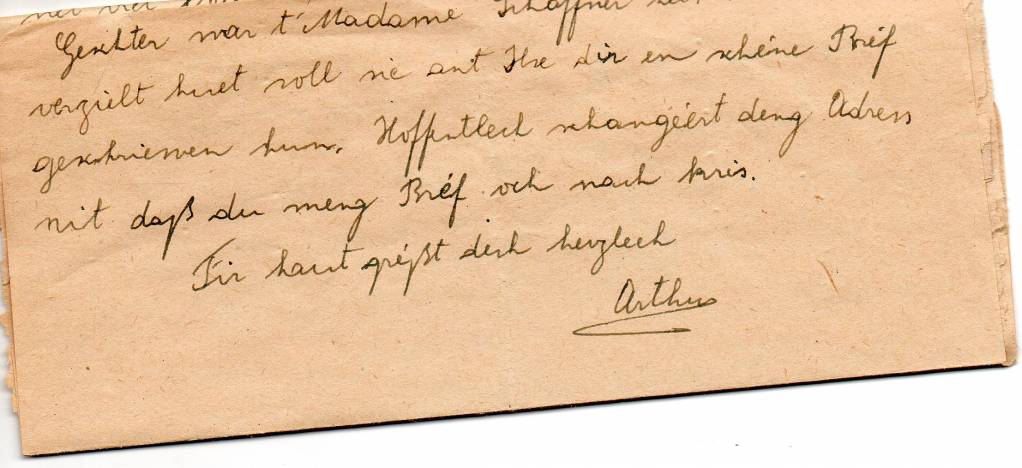 Geschter war t'Madame Schaffner
verzielt huet soll sie ant Ilse dir en schéine Bréf
geschriewen hun. Hoffentlech schangéert deng Adress
nit daß du meng Bréf och nach kris.
Fir haut gréßt dich herzlech
Arthur